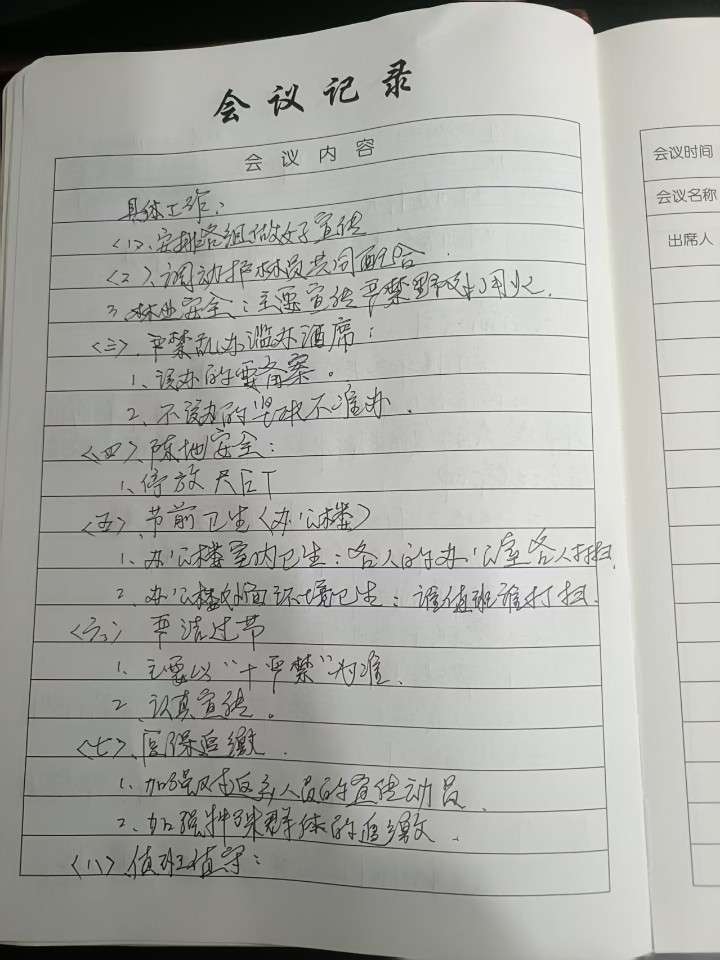 会议记录
会议内容
具体工作：
(1)、安排各组做好宣传
(2)、调动护林员共同配合
3. 林业安全：主要宣传严禁野外用火.
(三)、严禁乱办滥办酒席：
1、该办的要备案。
2、不该办的坚决不准办.
(四)、陈地安全：
1、停放
(五)、节前卫生(办公楼)
1、办公楼室内卫生：各人的办公室各人打扫.
2、办公楼外面环境卫生：谁值班谁打扫.
(六) 严洁过节
1、主要以“十严禁”为准.
2 认真宣传。
(七)、医保追缴.
1、加强返乡人员的宣传动员.
2、加强特殊群体的追缴.
(八)、值班值守：
会议时间
会议名称
出席人